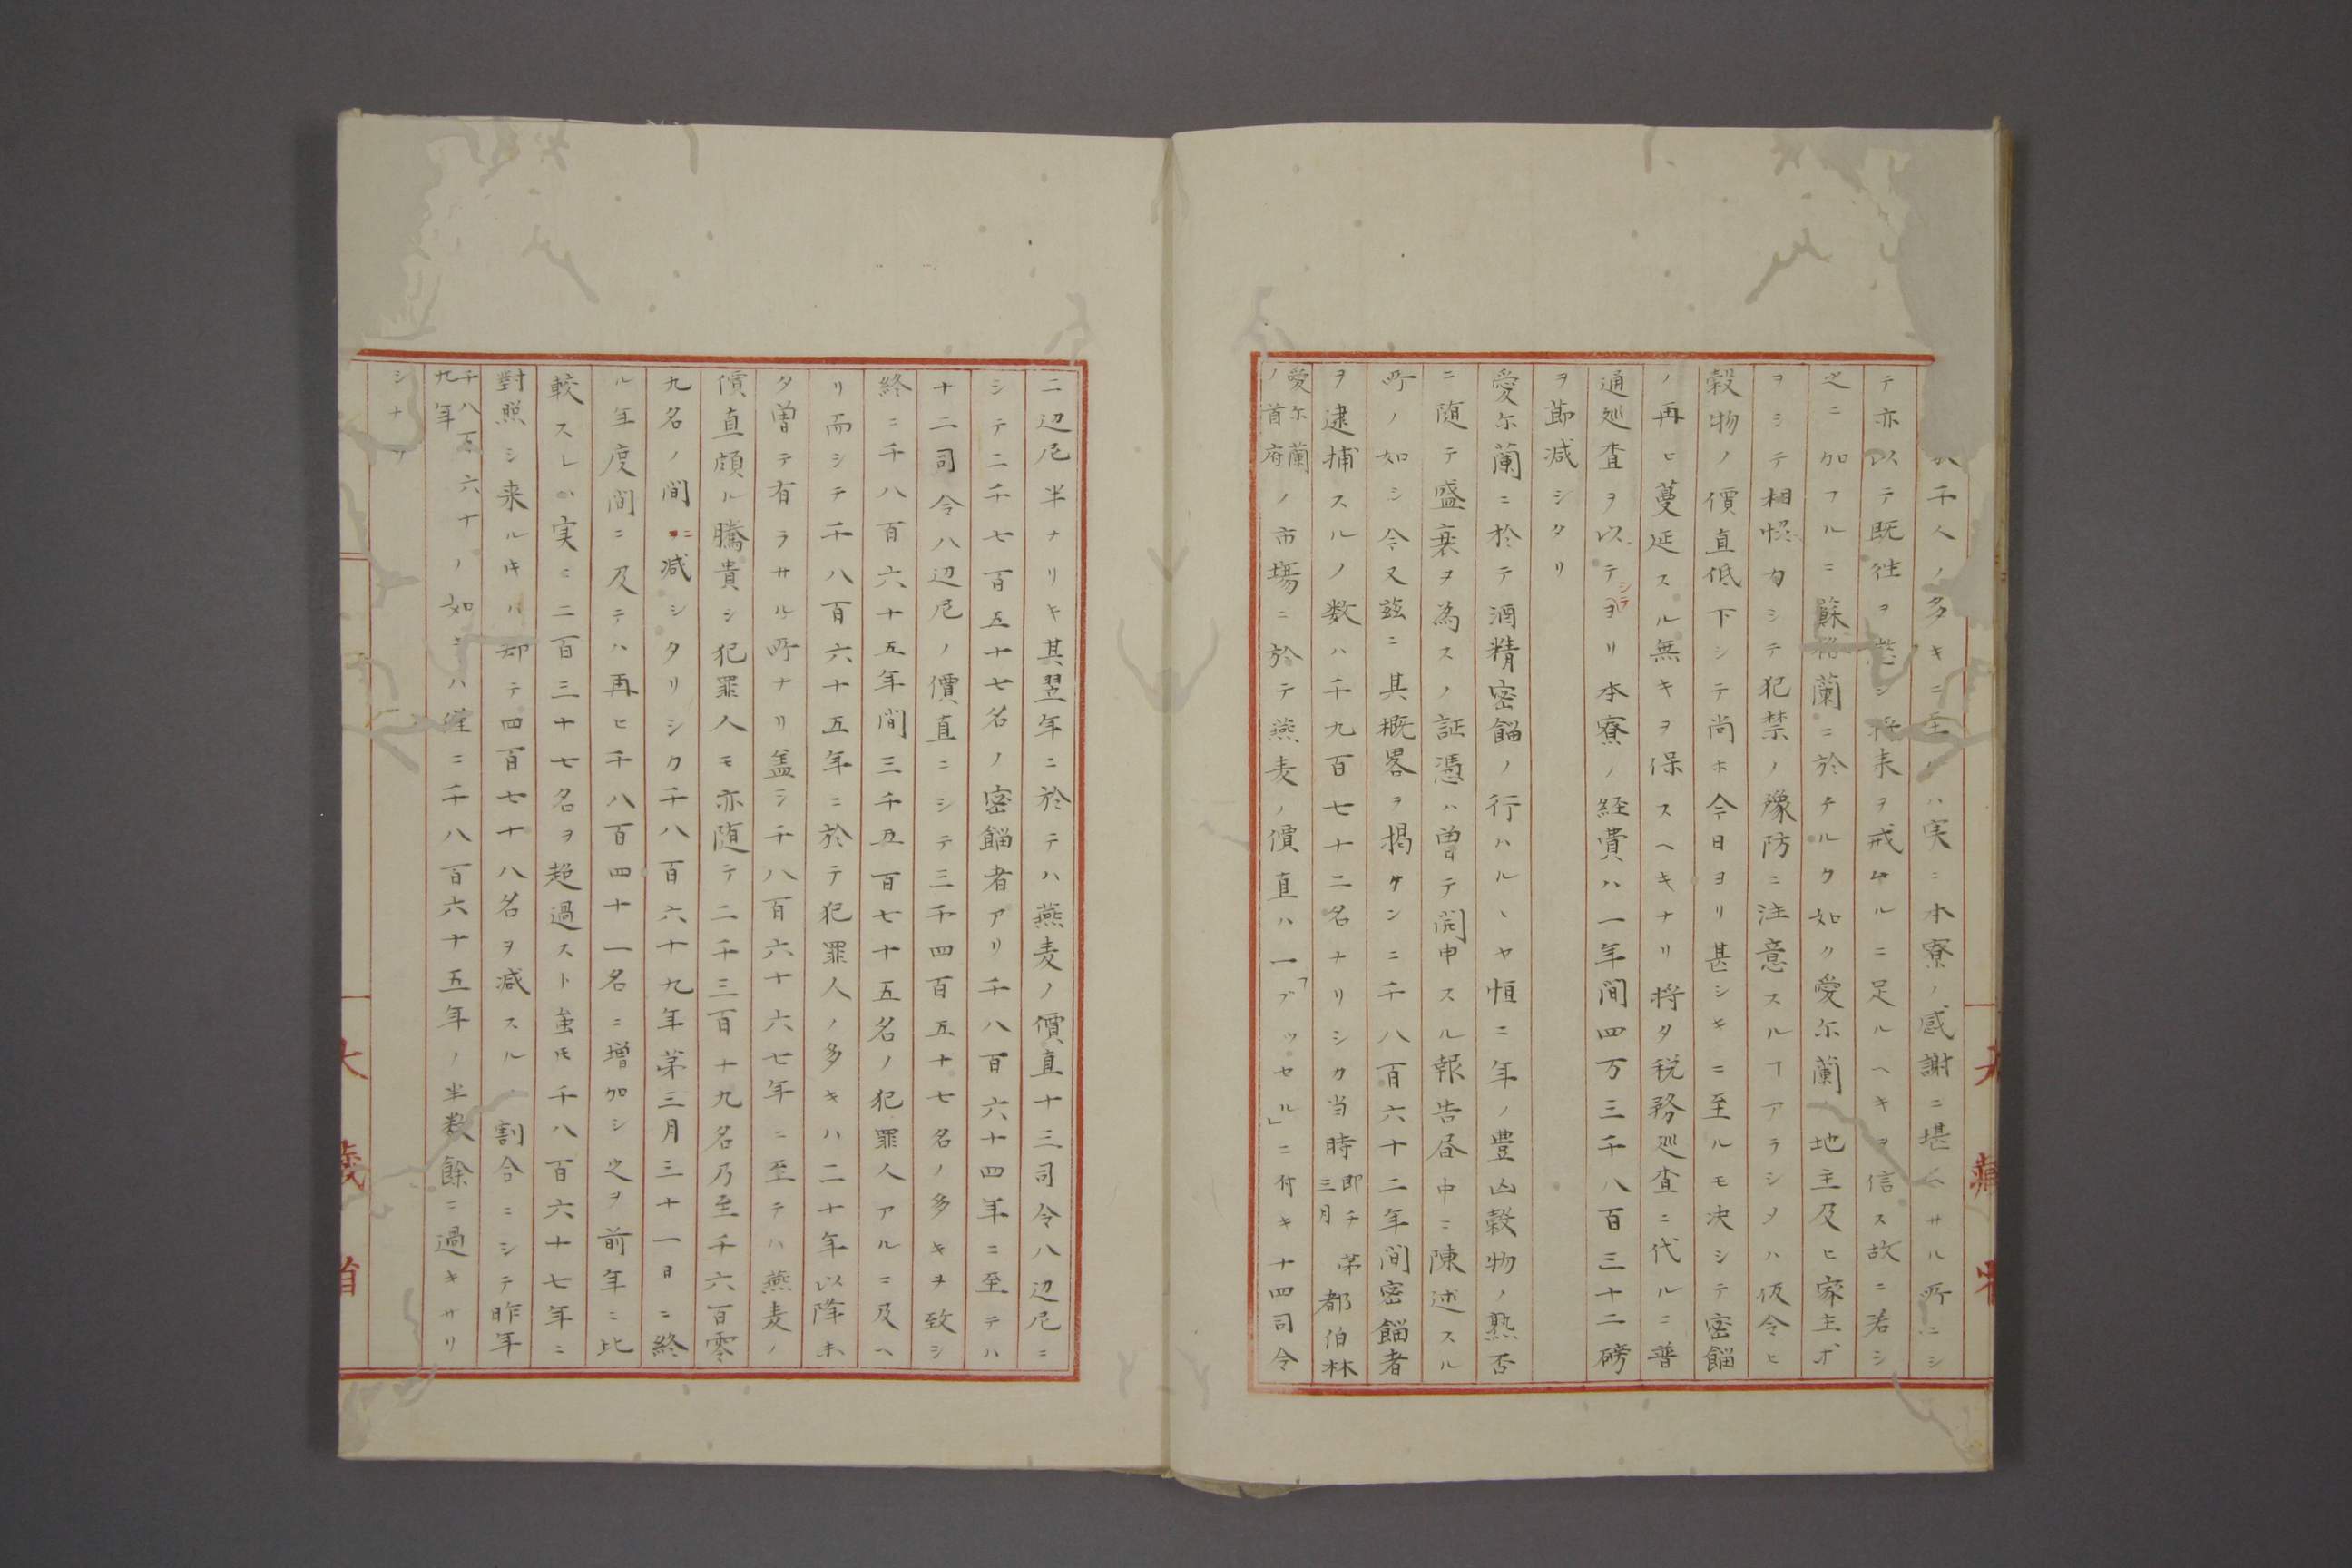 千人ノ多キニ至リハ実ニ本寮ノ感謝ニ堪ヘサル所ニシ
テ亦以テ既往ヲ懲シ将来ヲ戒ムルニ足ルヘキヲ信ス故ニ若シ
之ニ加フルニ蘇格蘭ニ於テルク如ク愛尓蘭ノ地主及ヒ家主ヲ
ヲシテ相憁カシテ犯禁ノ豫防ニ注意スルヿアラシメハ仮令ヒ
穀物ノ價直低下シテ尚ホ今日ヨリ甚シキニ至ルモ决シテ密餾
ノ再ヒ蔓延スル無キヲ保スヘキナリ将タ税務巡査ニ代ルニ普
通巡査ヲ以テシテヨリ本寮ノ経費ハ一年間四万三千八百三十二磅
ヲ節减シタリ
愛尓蘭ニ於テ酒精密餾ノ行ハルヽヤ恒ニ年ノ豊凶穀物ノ熟否
ニ随テ盛衰ヲ為スノ証憑ハ曽テ開申スル報告昼申ニ陳述スル
所ノ如シ今又兹ニ其概畧ヲ掲ケンニ千八百六十二年間密餾者
ヲ逮捕スルノ数ハ千九百七十二名ナリシカ当時即チ第三月都伯林
愛尓蘭ノ首府ノ市場ニ於テ燕麦ノ價直ハ一「ブッセル」ニ付キ十四司令
二辺尼半ナリキ其翌年ニ於テハ燕麦ノ價直十三司令八辺尼ニ
シテ二千七百五十七名ノ密餾者アリ千八百六十四年ニ至テハ
十二司令八辺尼ノ價直ニシテ三千四百五十七名ノ多キヲ致シ
終ニ千八百六十五年間三千五百七十五名ノ犯罪人アルニ及ヘ
リ而シテ千八百六十五年ニ於テ犯罪人ノ多キハ二十年以降未
タ曽テ有ラサル所ナリ盖シ千八百六十六七年ニ至テハ燕麦ノ
價直頗ル騰貴シ犯罪人モ亦随テ二千三百十九名乃至千六百零
九名ノ間ニ减シタリシク千八百六十九年第三月三十一日ニ終
ル年度間ニ及テハ再ヒ千八百四十一名ニ増加シ之ヲ前年ニ比
較スレハ実ニ二百三十七名ヲ超過スト虽モ千八百六十七年ニ
對照シ来ルキハ却テ四百七十八名ヲ减スル割合ニシテ昨年
千八百六十九年ノ如シハ僅ニ千八百六十五年ノ半数餘ニ過キサリ
シナリ
大藏省
大藏省